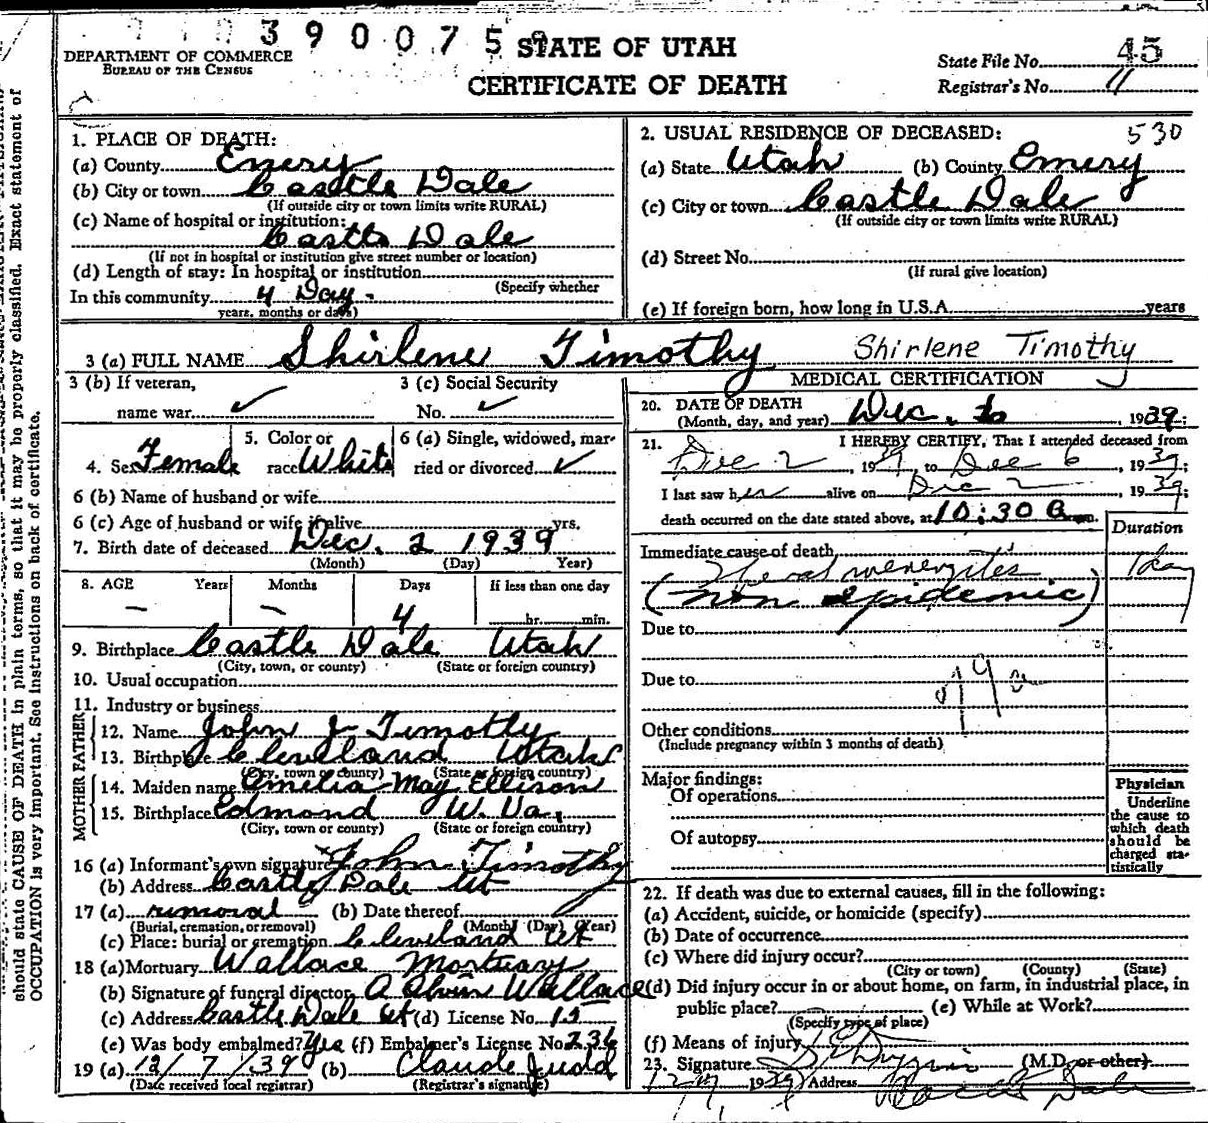 390075
DEPARTMENT OF COMMERCE
BUREAU OF THE CENSUS
STATE OF UTAH
CERTIFICATE OF DEATH
State File No. 45
Registrar's No. 11
should state CAUSE OF DEATH in plain terms, so that it may be properly classified. Exact statement of
OCCUPATION is very important. See instructions on back of certificate.
1. PLACE OF DEATH:
(a) County Emery
(b) City or town Castle Dale
(If outside city or town limits write RURAL)
(c) Name of hospital or institution:
Castle Dale
(If not in hospital or institution give street number or location)
(d) Length of stay: In hospital or institution
(Specify whether
In this community 4 Day.
years, months or days)
2. USUAL RESIDENCE OF DECEASED: 530
(a) State Utah (b) County Emery
(c) City or town Castle Dale
(If outside city or town limits write RURAL)
(d) Street No.
(If rural give location)
(e) If foreign born, how long in U.S.A. years
3 (a) FULL NAME Shirlene Timothy Shirlene Timothy
3 (b) If veteran,
name war ✓
3 (c) Social Security
No. ✓
4. Sex Female
5. Color or
race White
6 (a) Single, widowed, mar-
ried or divorced ✓
6 (b) Name of husband or wife
6 (c) Age of husband or wife if alive yrs.
7. Birth date of deceased Dec. 2 1939
(Month) (Day) Year)
8. AGE Years Months Days If less than one day
— — 4 hr. min.
9. Birthplace Castle Dale Utah
(City, town, or county) (State or foreign country)
10. Usual occupation
11. Industry or business
FATHER
12. Name John J Timothy
13. Birthplace Cleveland Utah
(City, town or county) (State or foreign country)
MOTHER
14. Maiden name Emelia May Ellison
15. Birthplace Edmond W. Va.
(City, town or county) (State or foreign country)
16 (a) Informant's own signature John Timothy
(b) Address Castle Dale Ut
17 (a) removal (b) Date thereof
(Burial, cremation, or removal) (Month) (Day) (Year)
(c) Place: burial or cremation Cleveland Ut
18 (a) Mortuary Wallace Mortuary
(b) Signature of funeral director A Alvin Wallace
(c) Address Castle Dale Ut (d) License No. 15
(e) Was body embalmed? Yes (f) Embalmer's License No. 236
19 (a) 12/7/39 (b) Claude Judd
(Date received local registrar) (Registrar's signature)
MEDICAL CERTIFICATION
20. DATE OF DEATH
(Month, day, and year) Dec. 6 1939;
21. I HEREBY CERTIFY, That I attended deceased from
Dec 2, 1939, to Dec 6, 1939;
I last saw her alive on Dec 2, 1939;
death occurred on the date stated above, at 10:30 a m.
Duration
Immediate cause of death
menengites 1 day
(non epidemic)
Due to
Due to
Other conditions
(Include pregnancy within 3 months of death)
Major findings:
Of operations
Of autopsy
Physician
Underline
the cause to
which death
should be
charged sta-
tistically
22. If death was due to external causes, fill in the following:
(a) Accident, suicide, or homicide (specify)
(b) Date of occurrence
(c) Where did injury occur?
(City or town) (County) (State)
(d) Did injury occur in or about home, on farm, in industrial place, in
public place? (e) While at Work?
(Specify type of place)
(f) Means of injury
23. Signature (M.D. or other)
1939 Address Castle Dale